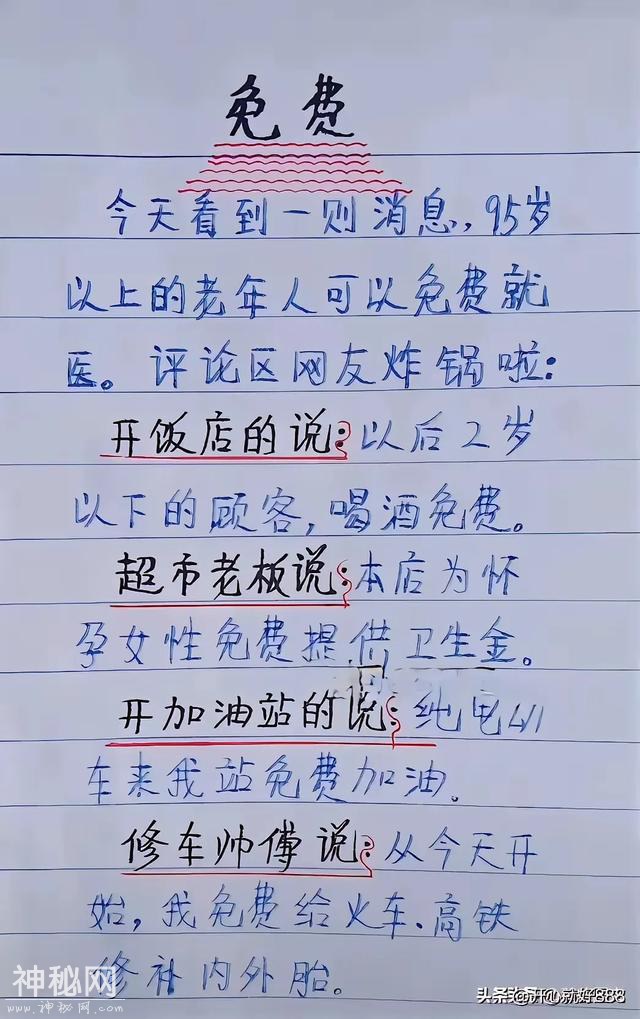 免费
今天看到一则消息,95岁
以上的老年人可以免费就
医。评论区网友炸锅啦:
开饭店的说:以后2岁
以下的顾客,喝酒免费。
超市老板说:本店为怀
孕女性免费提供卫生金。
开加油站的说:纯电
车来我站免费加油。
修车帅傅说:从今天开
始,我免费给火车、高铁
修补内外胎。
神秘网
www.神秘网.com
头条 @开心就好888